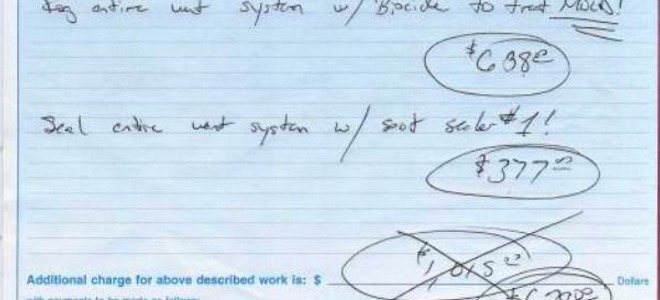 Fog entire vent system w/ Biocide to treat MOLD!
$638 00
Seal entire vent system w/ soot sealer #1!
$377 00
$1,015 00
Additional charge for above described work is: $ Dollars
with payments to be made as follows: